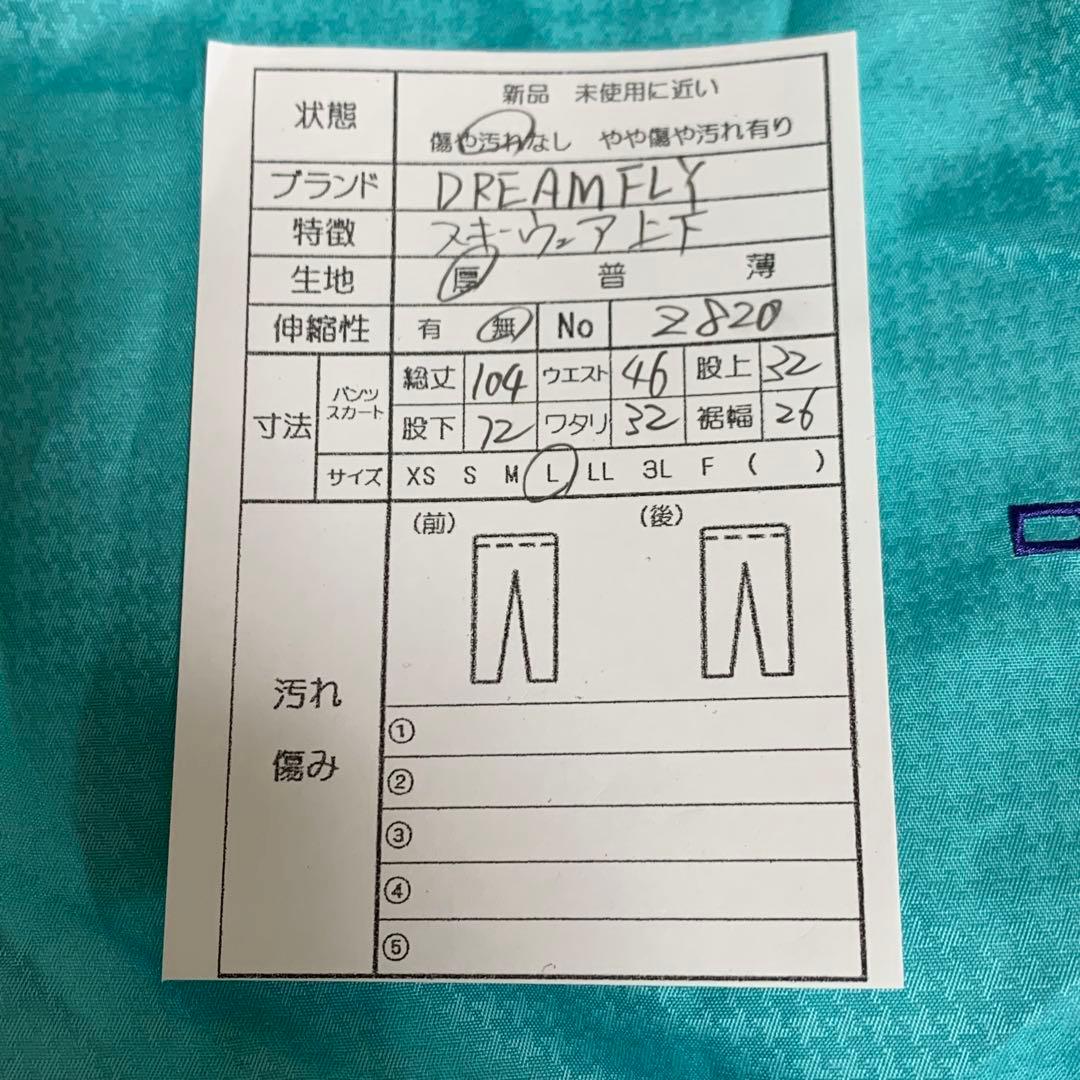 状態 新品 未使用に近い
傷や汚れなし やや傷や汚れ有り
ブランド DREAMFLY
特徴 スキーウェア上下
生地 厚 普 薄
伸縮性 有 無 No 2820
寸法 パンツ スカート 総丈 104 ウエスト 46 股上 32
股下 72 ワタリ 32 裾幅 26
サイズ XS S M L LL 3L F ( )
(前) (後)
汚れ
傷み
①
②
③
④
⑤